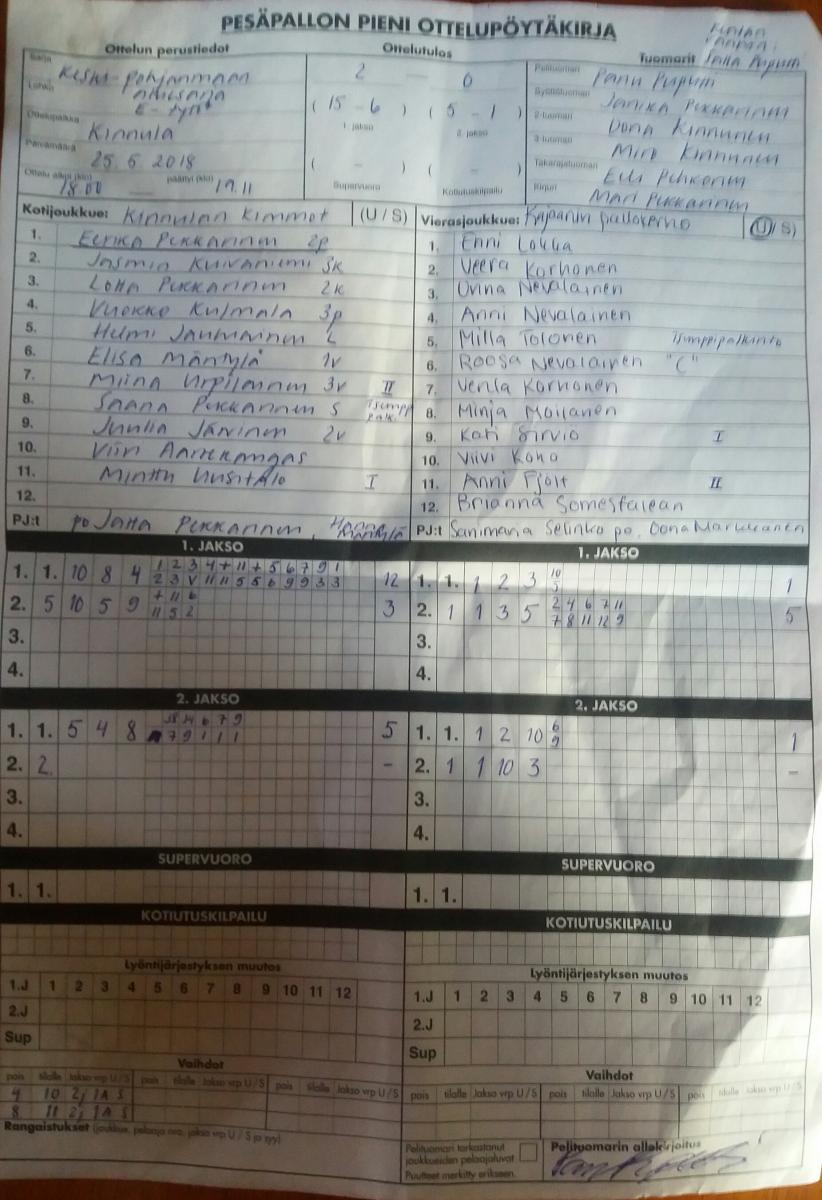 PESÄPALLON PIENI OTTELUPÖYTÄKIRJA
Ottelun perustiedot
Ottelutulos
Tuomarit Jatta Puputti
Sarja
Keski-Pohjanmaan
Lohko
aluesarja
E-tytöt
Ottelupaikka
Kinnula
Päivämäärä
25.6 2018
Ottelu alkoi (klo) 18.00 päättyi (klo) 19.11
2 0
( 15 - 6 ) ( 5 - 1 )
1. jakso 2. jakso
( - ) ( - )
Supervuoro Kotiutuskilpailu
Pelituomari Panu Puputti
Syöttötuomari Janika Pekkarinen
2-tuomari Oona Kinnunen
3-tuomari Miro Kinnunen
Takarajatuomari
Kirjuri Mari Pekkarinen
Kotijoukkue: Kinnulan Kimmot (U / S)
1. Eerika Pekkarinen 2p
2. Jasmin Kuivaniemi 3k
3. Lotta Pekkarinen 2k
4. Vuokko Kulmala 3p
5. Helmi Janhunen L
6. Elisa Mäntylä 1v
7. Miina Urpilainen 3v II
8. Saana Pekkarinen S
9. Juulia Järvinen 2v
10. Viivi Aarrekangas
11. Minttu Uusitalo I
12.
PJ:t po Jatta Pekkarinen, Hanna Mäntylä
Vierasjoukkue: Kajaanin pallokerho (U / S)
1. Enni Lokka
2. Veera Korhonen
3. Unna Nevalainen
4. Anni Nevalainen
5. Milla Tolonen Tsemppipalkinto
6. Roosa Nevalainen "C"
7. Venla Korhonen
8. Minja Moilanen
9. Kati Sirviö I
10. Viivi Kono
11. Anni Fjolt II
12. Brianna Somestalean
PJ:t Sanimaria Selinko po, Oona Markkanen
1. JAKSO
1. 1. 10 8 4 12
2. 5 10 5 9 3
3.
4.
1. JAKSO
1. 1. 1 2 3 10 5 1
2. 1 1 3 5 2 4 6 7 11 5
7 8 11 12 9
3.
4.
2. JAKSO
1. 1. 5 4 8 5
2. 2. -
3.
4.
2. JAKSO
1. 1. 1 2 10 6 9 1
2. 1 1 10 3 -
3.
4.
SUPERVUORO
1. 1.
SUPERVUORO
1. 1.
KOTIUTUSKILPAILU
KOTIUTUSKILPAILU
Lyöntijärjestyksen muutos
1.J 1 2 3 4 5 6 7 8 9 10 11 12
2.J
Sup
Lyöntijärjestyksen muutos
1.J 1 2 3 4 5 6 7 8 9 10 11 12
2.J
Sup
Vaihdot
pois tilalle Jakso vrp U / S pois tilalle Jakso vrp U / S pois tilalle Jakso vrp U / S
4 10 2j 1A S
8 11 2j 1A S
Vaihdot
pois tilalle Jakso vrp U / S pois tilalle Jakso vrp U / S pois tilalle Jakso vrp U / S
Rangaistukset (joukkue, pelaaja nro, jakso vrp U / S ja syy)
Pelituomari tarkastanut
joukkueiden pelaajaluvat
Puutteet merkitty erikseen.
Pelituomarin allekirjoitus